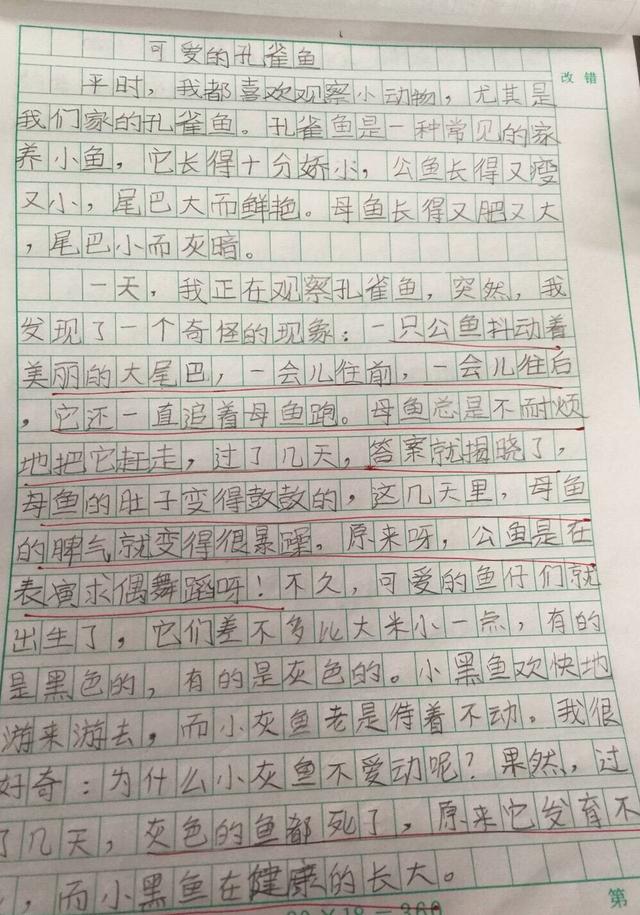 可爱的孔雀鱼
改错
平时，我都喜欢观察小动物，尤其是
我们家的孔雀鱼。孔雀鱼是一种常见的家
养小鱼，它长得十分娇小，公鱼长得又瘦
又小，尾巴大而鲜艳。母鱼长得又肥又大
，尾巴小而灰暗。
一天，我正在观察孔雀鱼，突然，我
发现了一个奇怪的现象：一只公鱼抖动着
美丽的大尾巴，一会儿往前，一会儿往后
，它还一直追着母鱼跑。母鱼总是不耐烦
地把它赶走，过了几天，答案就揭晓了，
母鱼的肚子变得鼓鼓的，这几天里，母鱼
的脾气就变得很暴躁。原来呀，公鱼是在
表演求偶舞蹈呀！不久，可爱的鱼仔们就
出生了，它们差不多比大米小一点，有的
是黑色的，有的是灰色的。小黑鱼欢快地
游来游去，而小灰鱼老是待着不动。我很
好奇：为什么小灰鱼不爱动呢？果然，过
了几天，灰色的鱼都死了，原来它发育不
，而小黑鱼在健康的长大。
20×18=360
第